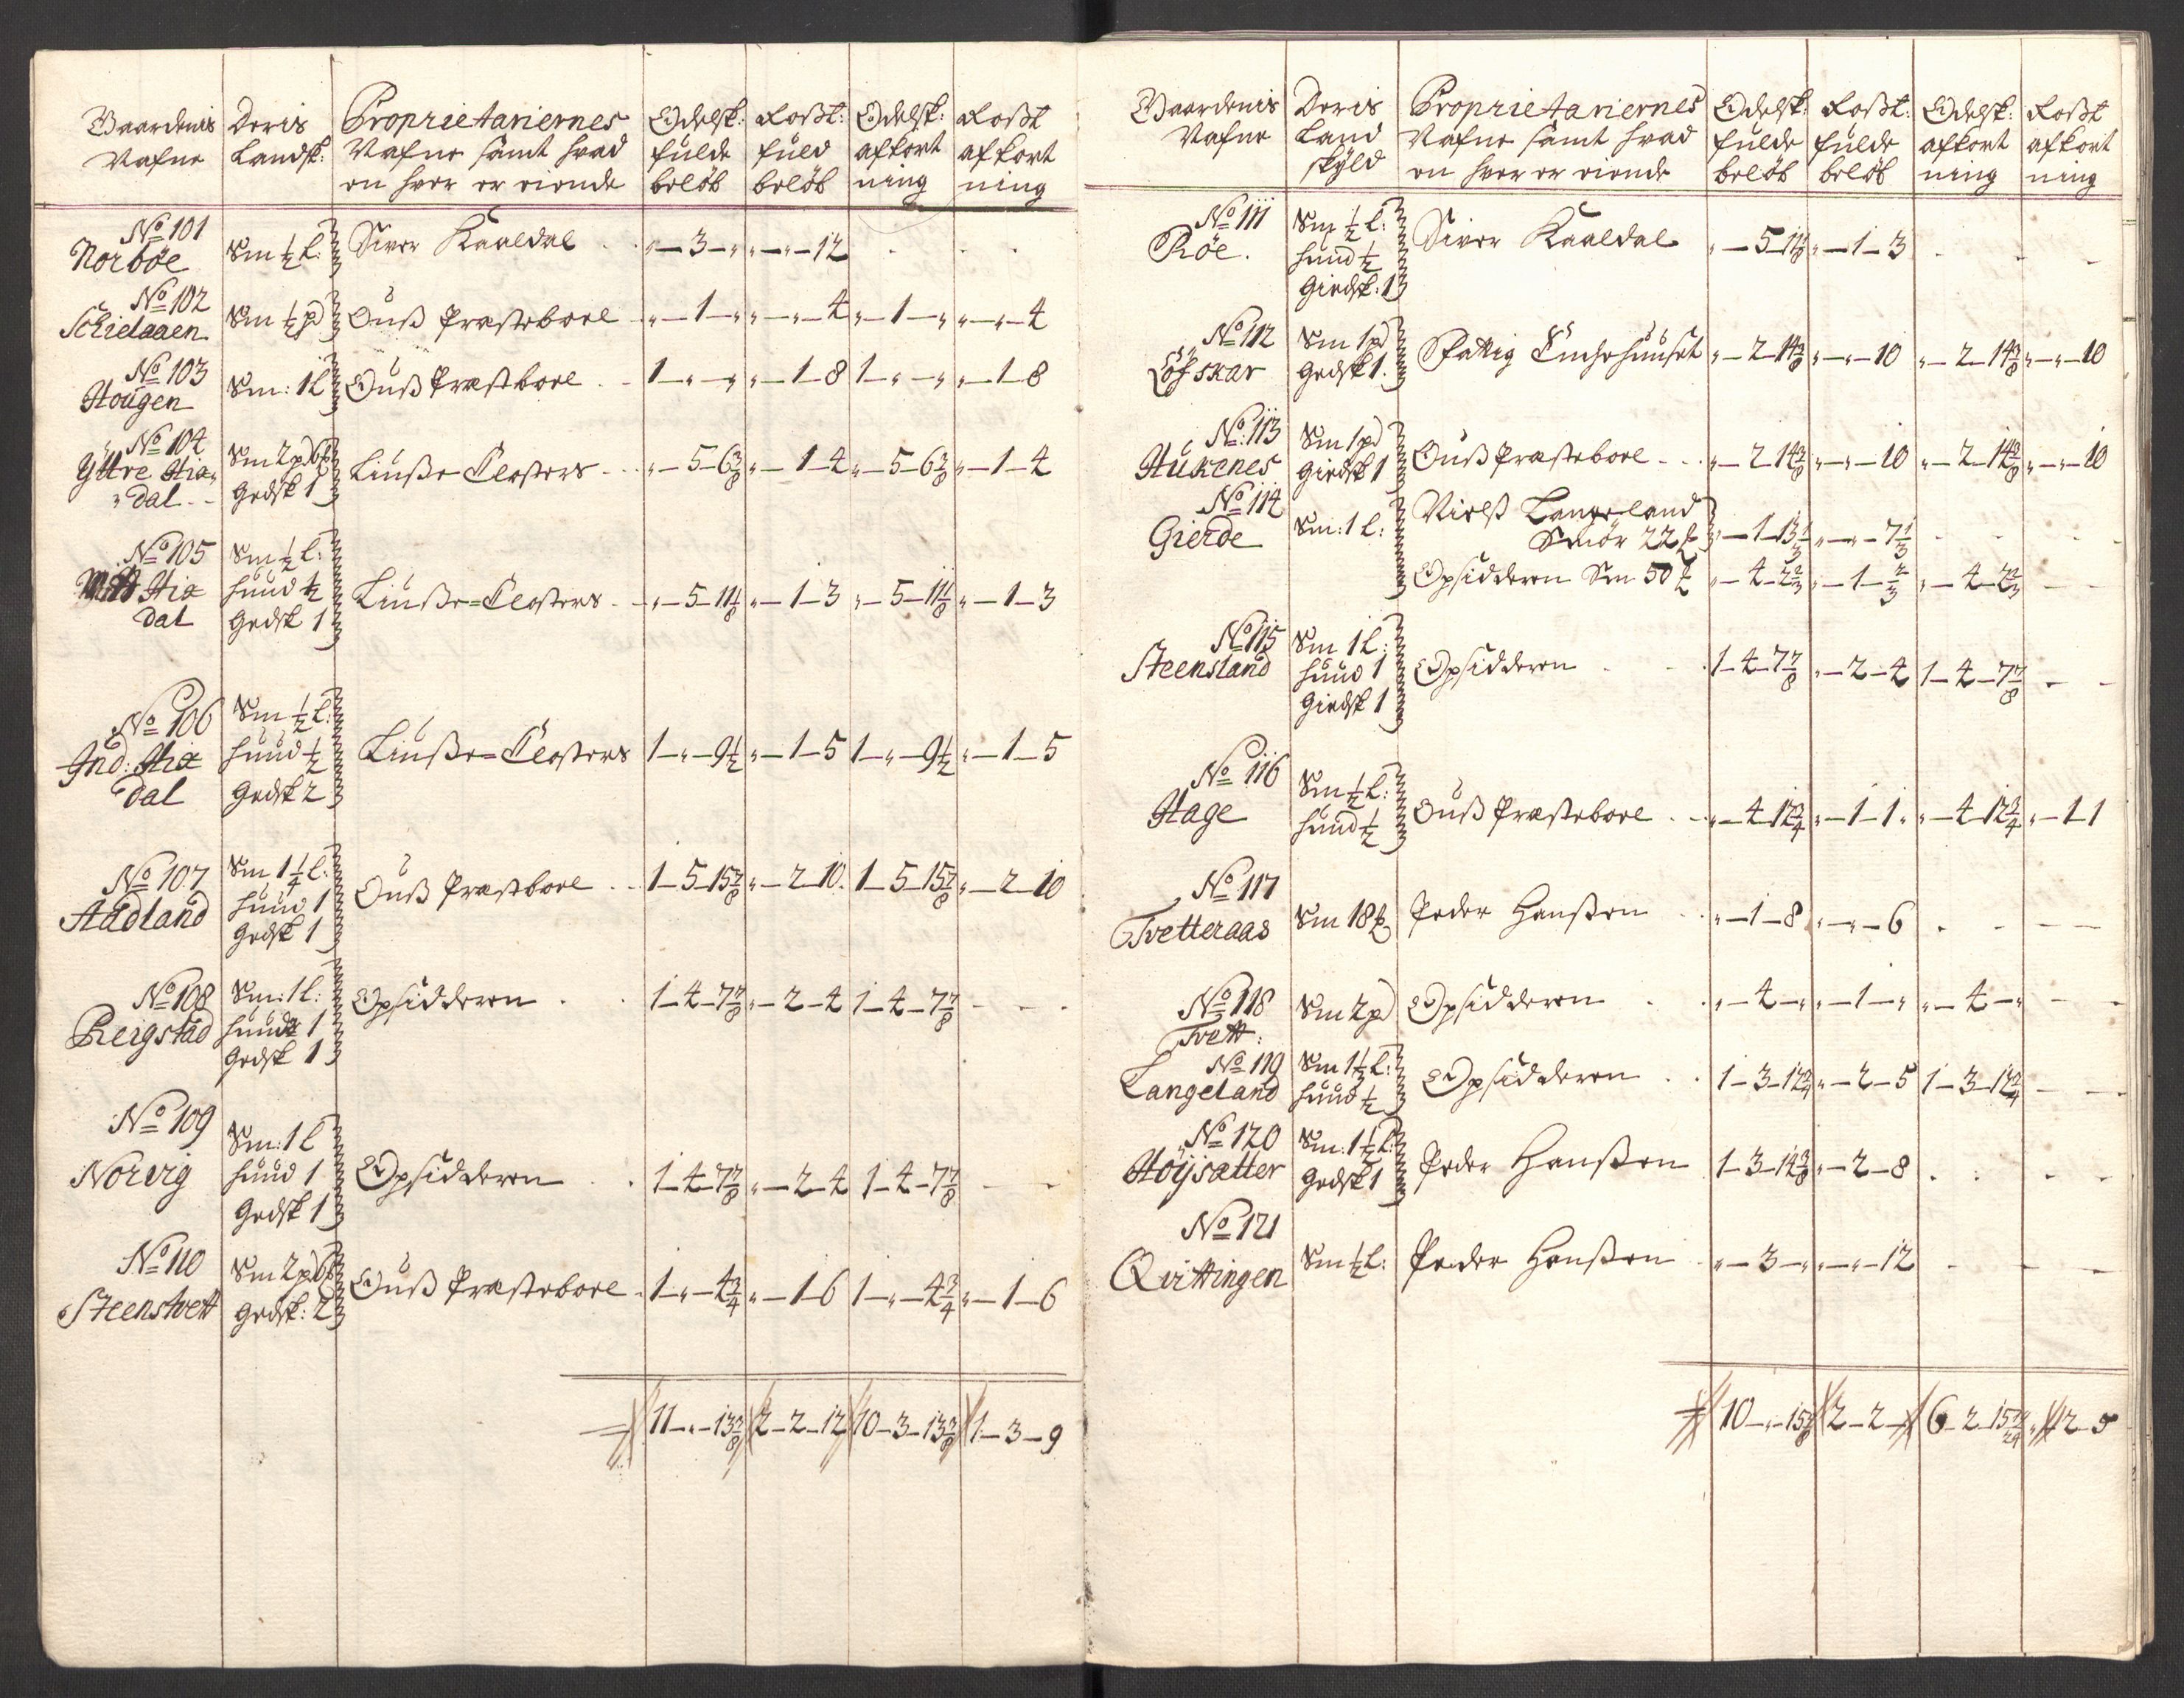 Gaardenis Nafne | Deris Landsk: | Proprietariernes Nafne samt hvad en hver er eiende | Odelsk: fulde beløb | Roßt: fuld beløb | Odelsk: afkort ning | Roßt afkort ning
No 101 Norböe | Sm ½ l: | Siver Kaaldal | „ — 3 — „ | „ — „ — 12
No 102 Schielaaen | Sm ½ pd | Ouß Præstebole | „ — 1 — „ | „ — „ — 4 | „ — 1 — „ | „ — „ — 4
No 103 Hougen | Sm: 1 l | Ouß Præstbole | 1 — „ — „ | „ — 1 — 8 | 1 — „ — „ | „ — 1 — 8
No 104 Yttre Hia„ „dal | Sm 2 pd 6 ℔ Gedsk 1 | Liuße Closters | „ — 5 — 6 3/8 | „ — 1 — 4 | „ — 5 — 6 3/8 | „ — 1 — 4
No 105 Mitt Hia dal | Sm ½ l: huud ½ Gedsk 1 | Liuße=Closters | „ — 5 — 11 1/8 | „ — 1 — 3 | „ — 5 — 11 1/8 | „ — 1 — 3
No 106 Ind: Hia dal | Sm ½ l: huud ½ Gedsk 2 | Liuße=Closters | 1 — „ — 9 ½ | „ — 1 — 5 | 1 — „ — 9 ½ | „ — 1 — 5
No 107 Aadland | Sm 1 ¼ l: huud 1 Gedsk 1 | Ouß Præstbole | 1 — 5 — 15 7/8 | „ — 2 — 10 | 1 — 5 — 15 7/8 | „ — 2 — 10
No 108 Reigstad | Sm: 1 l: huud 1 Gedsk 1 | Opsidderen | 1 — 4 — 7 7/8 | „ — 2 — 4 | 1 — 4 — 7 7/8
No 109 Norvig | Sm: 1 l huud 1 Gedsk 1 | Opsidderen | 1 — 4 — 7 7/8 | „ — 2 — 4 | 1 — 4 — 7 7/8
No 110 Steenstvett | Sm 2 pd 6 ℔ Gedsk: 2 | Ouß Præstebole | 1 — „ — 4 ¾ | „ — 1 — 6 | 1 — „ — 4 ¾ | „ — 1 — 6
11 — „ — 13 3/8 | 2 — 2 — 12 | 10 — 3 — 13 3/8 | 1 — 3 — 9
Gaardenis Nafne | Deris Land skyld | Proprietariernes Nafne samt hvad en hver er eiende | Odelsk: fulde beløb | Roßt: fulde beløb | Odelsk: afkort ning | Roßt afkort ning
No 111 Röe. | Sm ½ l: huud ½ Giedsk: 1 | Siver Kaaldal | „ — 5 — 11 1/8 | „ — 1 — 3
No 112 Löfskar | Sm 1 pd Gedsk 1. | Fattig Enchehuuset | „ — 2 — 14 3/8 | „ — „ — 10 | „ — 2 — 14 3/8 | „ — „ — 10
No 113 Hukenes | Sm 1 pd Giedsk 1 | Ouß Præstebole | „ — 2 — 14 3/8 | „ — „ — 10 | „ — 2 — 14 3/8 | „ — „ — 10
No 114 Gierde | Sm: 1 l: | Nielß Langeland
Smör 22 ℔ | „ — 1 — 13 1/3 | „ — „ — 7 1/3
Opsidderen Sm 50 ℔ | „ — 4 — 2 2/3 | „ — 1 — 2/3 | „ — 4 — 2 2/3
No 115 Steensland | Sm 1 l: huud 1 Giedsk 1 | Opsidderen | 1 — 4 — 7 7/8 | „ — 2 — 4 | 1 — 4 — 7 7/8
No 116 Hage | Sm ½ l: huud ½ | Ouß Præstebole | „ — 4 — 12 ¾ | „ — 1 — 1 | „ — 4 — 12 ¾ | „ — 1 — 1
No 117 Tvetteraas | Sm 18 ℔ | Peder Hanßen | „ — 1 — 8 | „ — „ — 6
No 118 Tvett: | Sm 2 pd | Opsidderen | „ — 4 — „ | „ — 1 — „ | „ — 4 — „
No 119 Langeland | Sm 1 ½ l: huud ½ | Opsidderen | 1 — 3 — 12 ¾ | „ — 2 — 5 | 1 — 3 — 12 ¾
No 120 Höÿsatter | Sm: 1 ½ l: Gedsk 1 | Peder Hanßen | 1 — 3 — 14 3/8 | „ — 2 — 8
No 121 Qvittingen | Sm ½ l: | Peder Hanßen | „ — 3 — „ | „ — „ — 12
10 — „ — 15 7/8 | 2 — 2 — „ | 6 — 2 — 15 | „ — 2 — 5